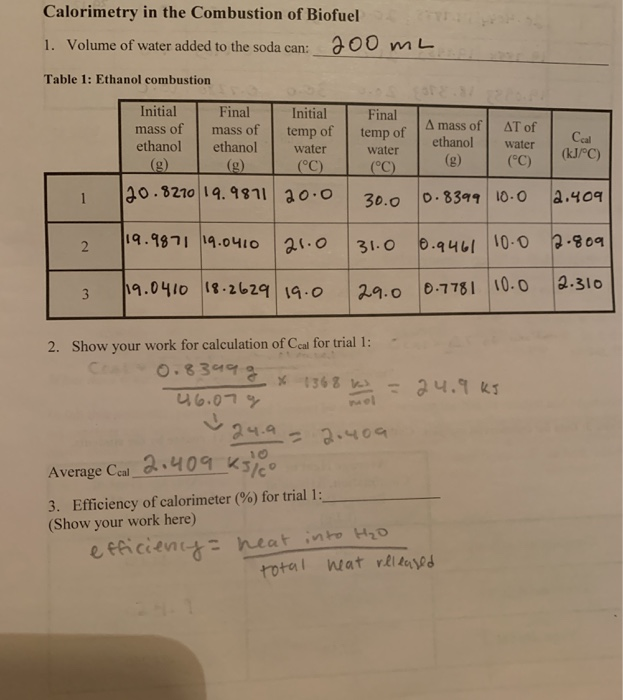 Calorimetry in the Combustion of Biofuel
1. Volume of water added to the soda can: 200 mL
Table 1: Ethanol combustion
Initial mass of ethanol (g) Final mass of ethanol (g) Initial temp of water (°C) Final temp of water (°C) Δ mass of ethanol (g) ΔT of water (°C) Ccal (kJ/°C)
1 20.8270 19.9871 20.0 30.0 0.8399 10.0 2.409
2 19.9871 19.0410 21.0 31.0 0.9461 10.0 2.809
3 19.0410 18.2629 19.0 29.0 0.7781 10.0 2.310
2. Show your work for calculation of Ccal for trial 1:
0.8399 g
46.07 g
x 1368 kJ
mol
= 24.9 kJ
↓ 24.9
10
= 2.409
Average Ccal 2.409 kJ/c°
3. Efficiency of calorimeter (%) for trial 1:
(Show your work here)
efficiency = heat into H2O
total heat released